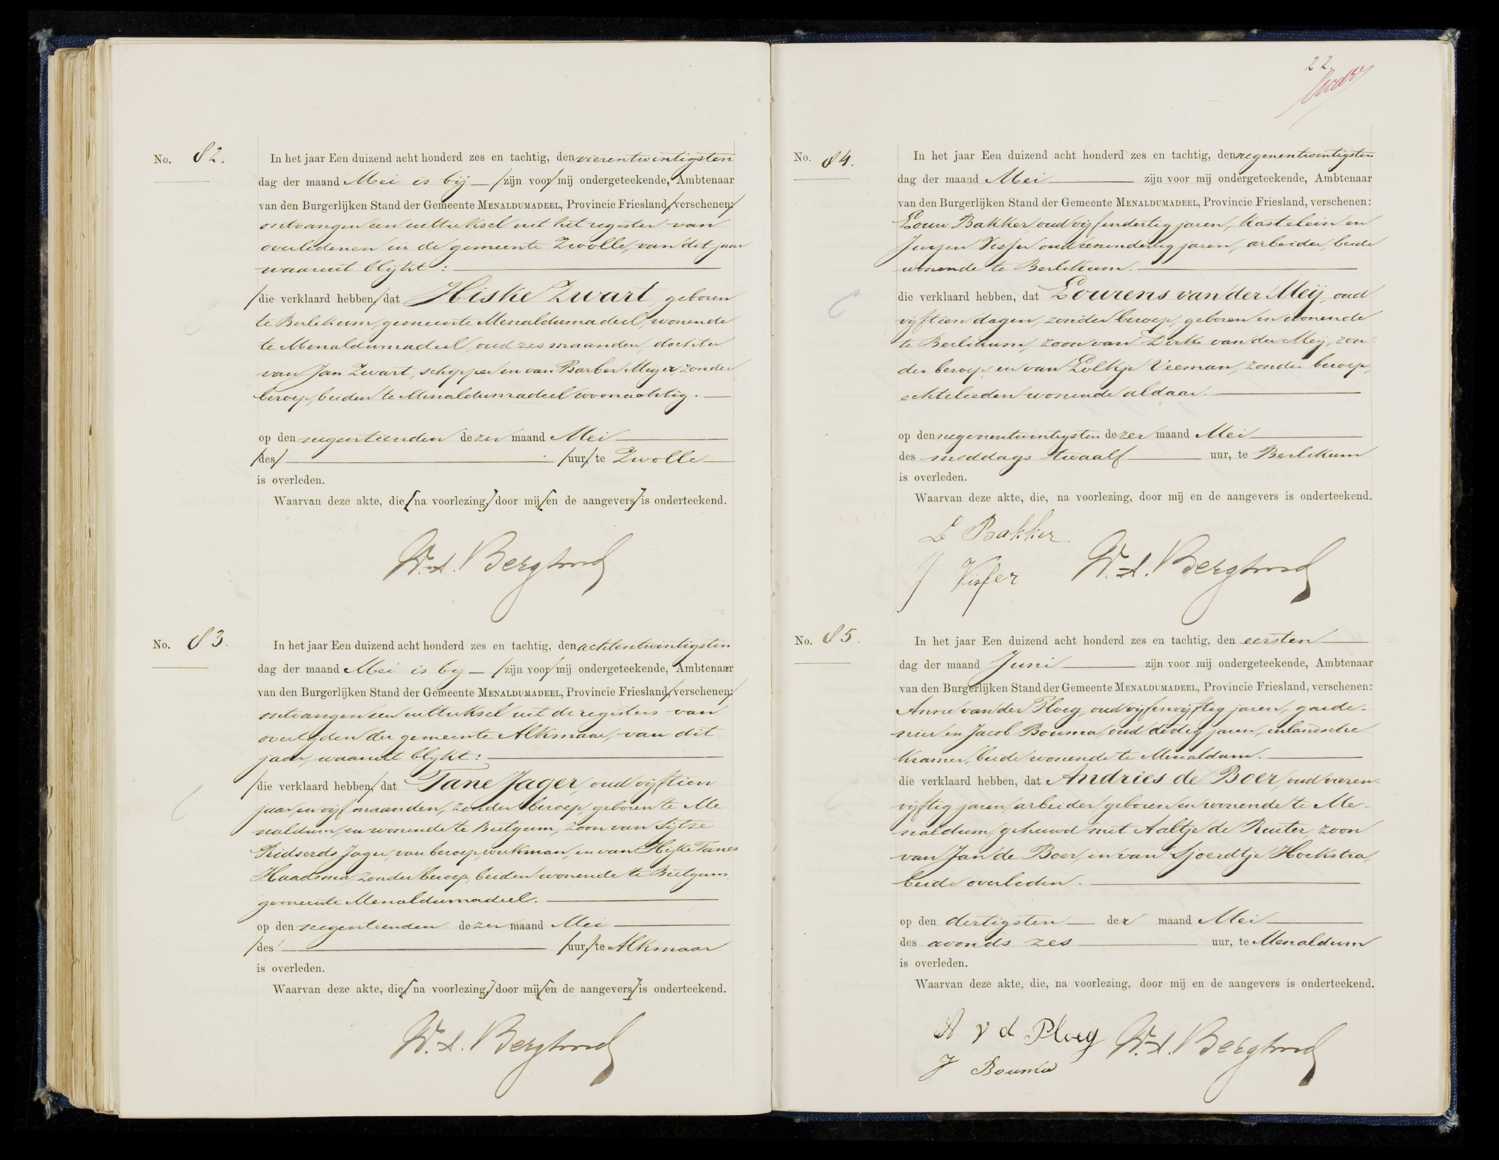 No. 82.
In het jaar Een duizend acht honderd zes en tachtig, den vierentwintigsten
dag der maand Mei is bij — /zijn voor/ mij ondergeteekende, Ambtenaar
van den Burgerlijken Stand der Gemeente MENALDUMADEEL, Provincie Friesland, /verschenen:/
ontvangen een uittreksel uit het register van
overledenen in de gemeente Zwolle, van dit jaar
waaruit blijkt :
/die verklaard hebben,/ dat Hiske Zwart, geboren
te Berlikum, gemeente Menaldumadeel, wonende
te Menaldumadeel, oud zes maanden, dochter
van Jan Zwart, schipper en van Barber Meijer zonder
beroep, beiden te Menaldumadeel woonachtig.
op den negentienden dezer maand Mei
/des/ /uur,/ te Zwolle
is overleden.
Waarvan deze akte, die [na voorlezing,] door mij [en de aangevers] is onderteekend.
W. A. Berghuis
No. 83.
In het jaar Een duizend acht honderd zes en tachtig, den achtentwintigsten
dag der maand Mei is bij — /zijn voor/ mij ondergeteekende, Ambtenaar
van den Burgerlijken Stand der Gemeente MENALDUMADEEL, Provincie Friesland, /verschenen:/
ontvangen een uittreksel uit de registers van
overlijden der gemeente Alkmaar, van dit
jaar, waaruit blijkt :
/die verklaard hebben,/ dat Tane Jager, oud vijftien
jaar, en vijf maanden, zonder beroep, geboren te Me
naldum, en wonende te Beetgum, zoon van Sijtse
Jager, van beroep werkman, en van Hiske Tanes
Haadsma, zonder beroep, beiden wonende te Beetgum
gemeente Menaldumadeel.
op den negentienden dezer maand Mei
/des/ /uur,/ te Alkmaar
is overleden.
Waarvan deze akte, die [na voorlezing,] door mij [en de aangevers] is onderteekend.
W. A. Berghuis
22
No. 84.
In het jaar Een duizend acht honderd zes en tachtig, den negenentwintigsten
dag der maand Mei zijn voor mij ondergeteekende, Ambtenaar
van den Burgerlijken Stand der Gemeente MENALDUMADEEL, Provincie Friesland, verschenen:
Louw Bakker, oud vijfendertig jaren, kastelein en
Jurjen Visser, oud jaren, arbeider, beide
wonende te Berlikum.
die verklaard hebben, dat Lourens van der Meij, oud
vijftien dagen, zonder beroep, geboren en wonende
te Berlikum, zoon van Dirk van der Meij, zon-
der beroep, en van Eeltje Veeman, zonder beroep,
echtelieden wonende aldaar.
op den negenentwintigsten dezer maand Mei
des middags twaalf uur, te Berlikum
is overleden.
Waarvan deze akte, die, na voorlezing, door mij en de aangevers is onderteekend.
L Bakker
J Visser W. A. Berghuis
No. 85.
In het jaar Een duizend acht honderd zes en tachtig, den eersten
dag der maand Juni zijn voor mij ondergeteekende, Ambtenaar
van den Burgerlijken Stand der Gemeente MENALDUMADEEL, Provincie Friesland, verschenen:
Anne van der Ploeg, oud vijfenvijftig jaren, garde-
nier en Jacob Bouma, oud dertig jaren, inlandsche
kramer, beide wonende te Menaldum.
die verklaard hebben, dat Andries de Boer, oud vieren-
vijftig jaren, arbeider, geboren en wonende te Me-
naldum, gehuwd met Aaltje de Ruiter, zoon
van Jan de Boer, en van Sjoerdtje Hoekstra,
beide overleden.
op den dertigsten der maand Mei
des avonds zes uur, te Menaldum
is overleden.
Waarvan deze akte, die, na voorlezing, door mij en de aangevers is onderteekend.
A v d Ploeg W. A. Berghuis
J Bouma